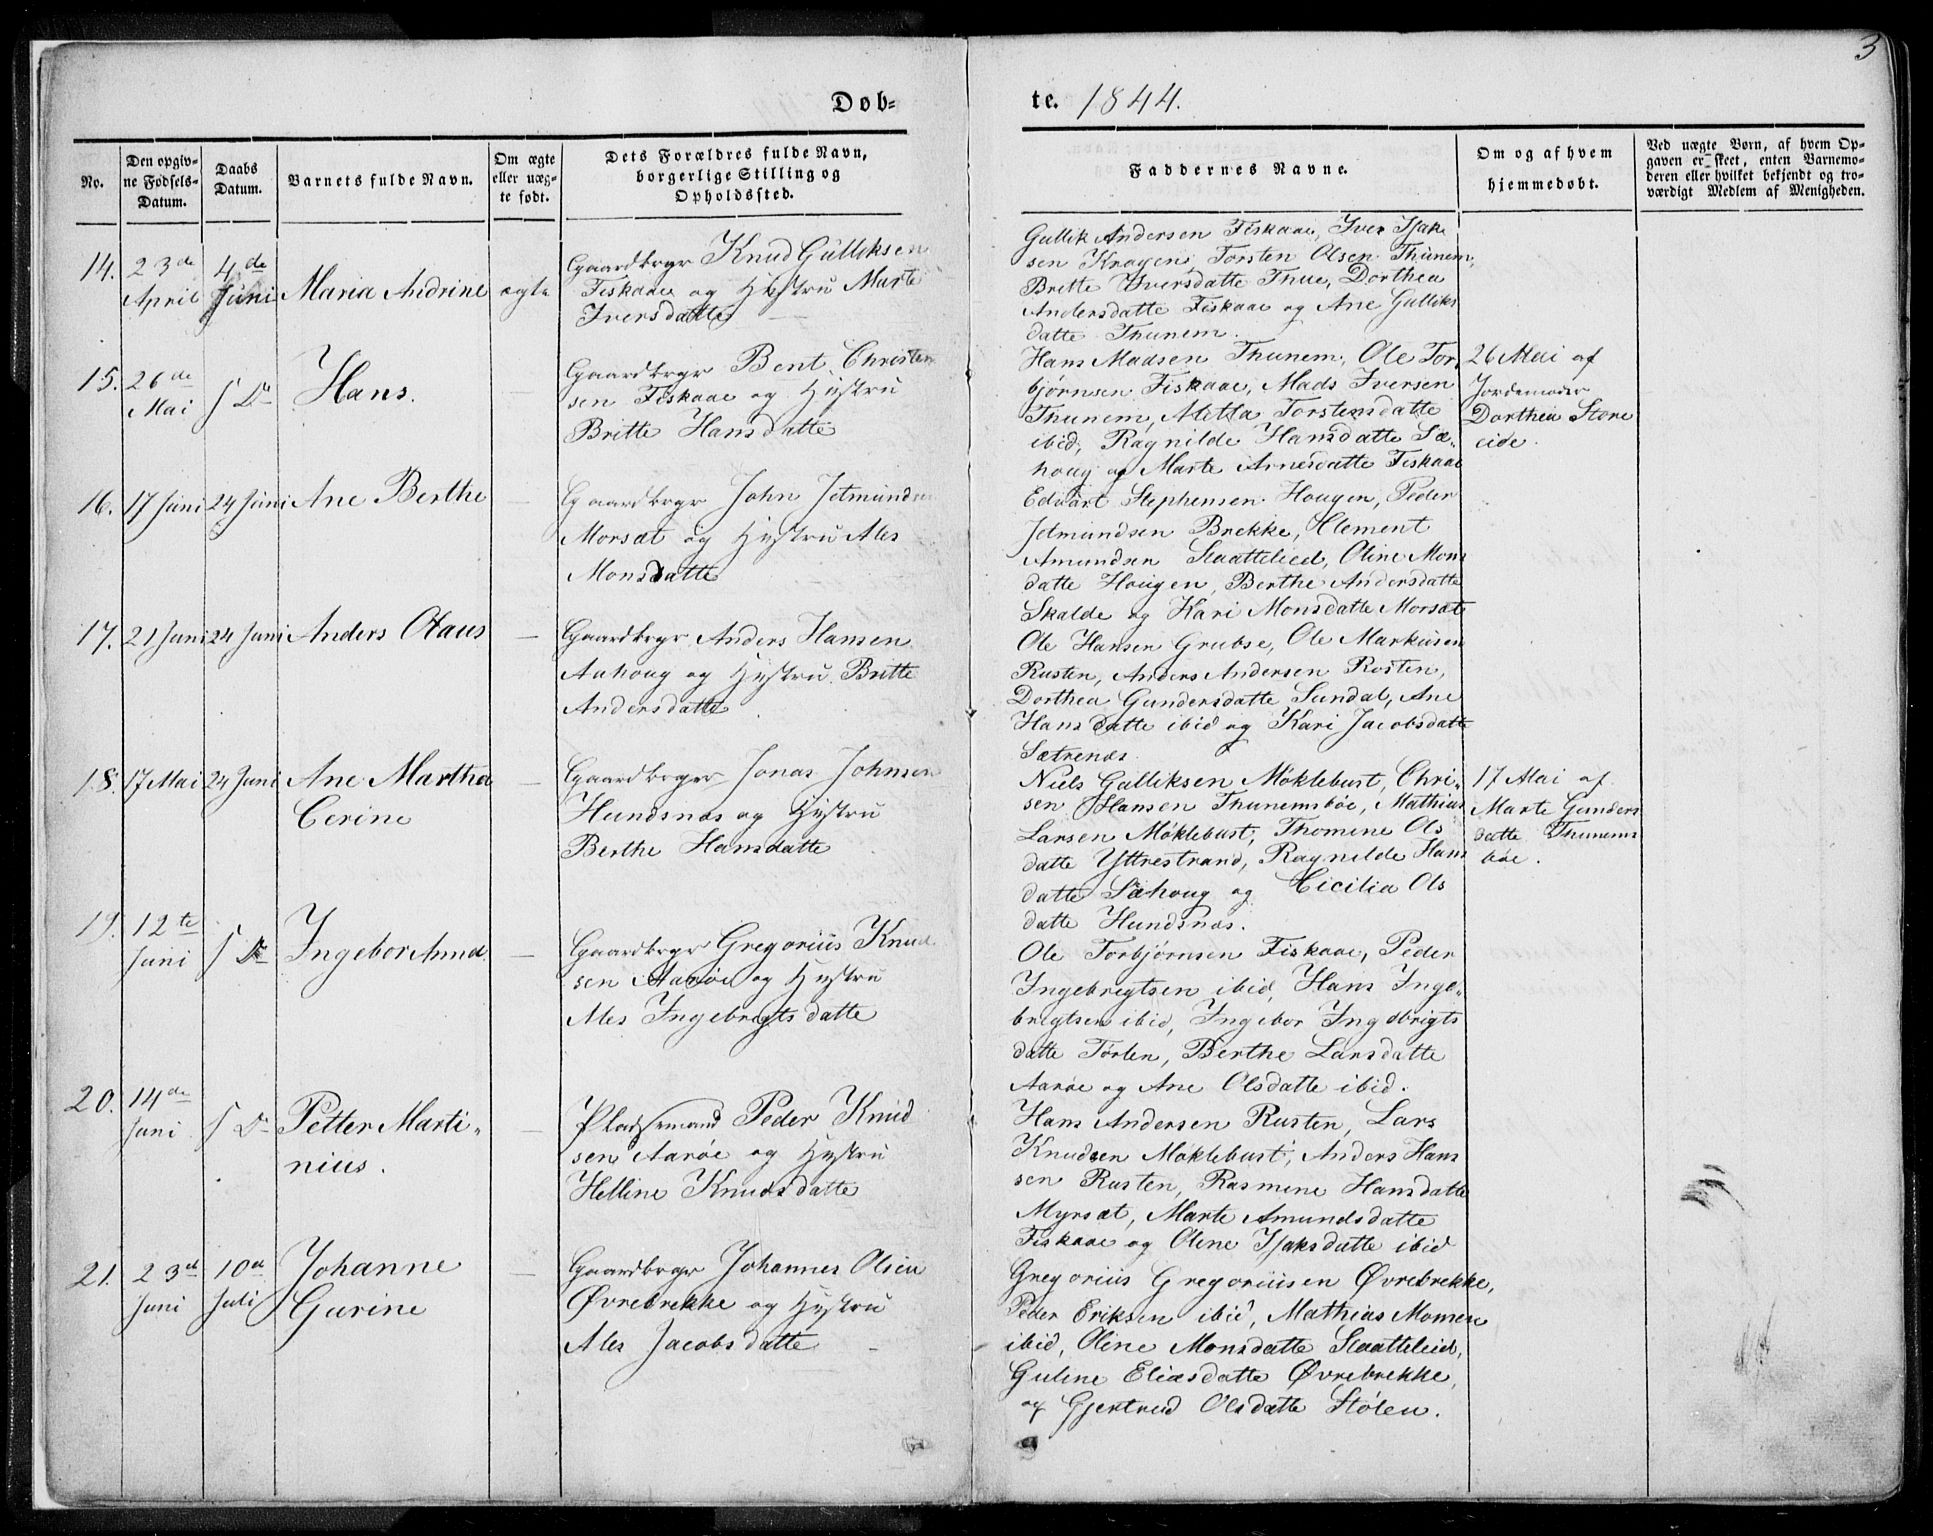 3
Døbte. 1844.
No.
Den opgivne Fødsels-Datum.
Daabs Datum.
Barnets fulde Navn.
Om ægte eller uægte født.
Dets Forældres fulde Navn, borgerlige Stilling og Opholdssted.
Faddernes Navne.
Om og af hvem hjemmedøbt.
Ved uægte Børn, af hvem Opgaven er skeet, enten Barnemoderen eller hvilket bekjendt og troværdigt Medlem af Menigheden.
14.
23de April
4de Juni
Maria Andrine
ægte
Gaardbrgr Knud Gulliksen
Fiskaae og Hystru Marte
Iversdatte
Gullik Andersen Fiskaae, Iver Isak
sen Kragen, Torsten Olsen Thunem,
Britte Iversdatte Thue, Dorthea
Andersdatte Fiskaae og Ane Gulliks
datte Thunem.
15.
26de Mai
S D
Hans.
Gaardbrgr Bent Christen
sen Fiskaae og Hystru
Britte Hansdatte
Hans Madsen Thunem, Ole Tor
bjørnsen Fiskaae, Mads Iversen
Thunem, Metta Torstensdatte
ibid, Ragnilde Hansdatte Sæ-
houg og Marte Arnesdatte Fiskaae
26 Mai af
Jordemoder
Dorthea Store
eide.
16.
17 Juni
24 Juni
Ane Berthe
Gaardbrgr John Jetmundsen
Morsæt og Hystru Ales
Monsdatte
Edvart Stephensen Hougen, Peder
Jetmundsen Brekke, Clement
Amundsen Slaattelied, Oline Mons
datte Hougen, Berthe Andersdatte
Skalde og Kari Monsdatte Morsæt
17.
21 Juni
24 Juni
Anders Olaus
Gaardbrgr Anders Hansen
Aahoug og Hystru Britte
Andersdatte
Ole Hansen Grubse, Ole Markusen
Rusten, Anders Andersen Rosten,
Dorthea Gundersdatte Sundal, Ane
Hansdatte ibid og Kari Jacobsdatte
Sætrenæs
18.
17 Mai
24 Juni
Ane Martha
Cerine
Gaardbrger Jonas Johnsen
Hundsnæs og Hystru
Berthe Hansdatte
Niels Gulliksen Møklebust, Chri-
sen Hansen Thunemsbøe, Mathias
Larsen Møklebust, Thomine Ols
datte Yttrestrand, Ragnilde Hans
datte Sæhoug og Cicilia Ols
datte Hundsnæs.
17 Mai af
Marte Gunders
datte Thunems
bøe.
19.
12te Juni
S D
Ingebor Anna
Gaardbrgr Gregorius Knud
sen Aarøe og Hystru
Ales Ingebregtsdatte
Ole Torbjørnsen Fiskaae, Peder
Ingebregtsen ibid, Hans Inge-
bregtsen ibid, Ingebor Ingebrigts
datte Tørlen, Berthe Larsdatte
Aarøe og Ane Olsdatte ibid.
20.
14de Juni
S D
Petter Marti-
nius.
Pladsemand Peder Knud
sen Aarøe og Hystru
Helline Knudsdatte
Hans Andersen Rusten, Lars
Knudsen Møklebust, Anders Hans
sen Rusten, Rasmine Hansdatte
Myrsæt, Marte Amundsdatte
Fiskaae og Oline Isaksdatte ibid
21.
23d Juni
10de Juli
Johanne
Gurine
Gaardbrgr Johannes Olsen
Øvrebrekke og Hystru
Ales Jacobsdatte
Gregorius Gregoriusen Øvrebrekke,
Peder Eriksen ibid, Mathias Monsen
ibid, Oline Monsdatte Slaattelied,
Guline Eliasdatte Øvrebrekke,
og Gjertrud Olsdatte Stølen.